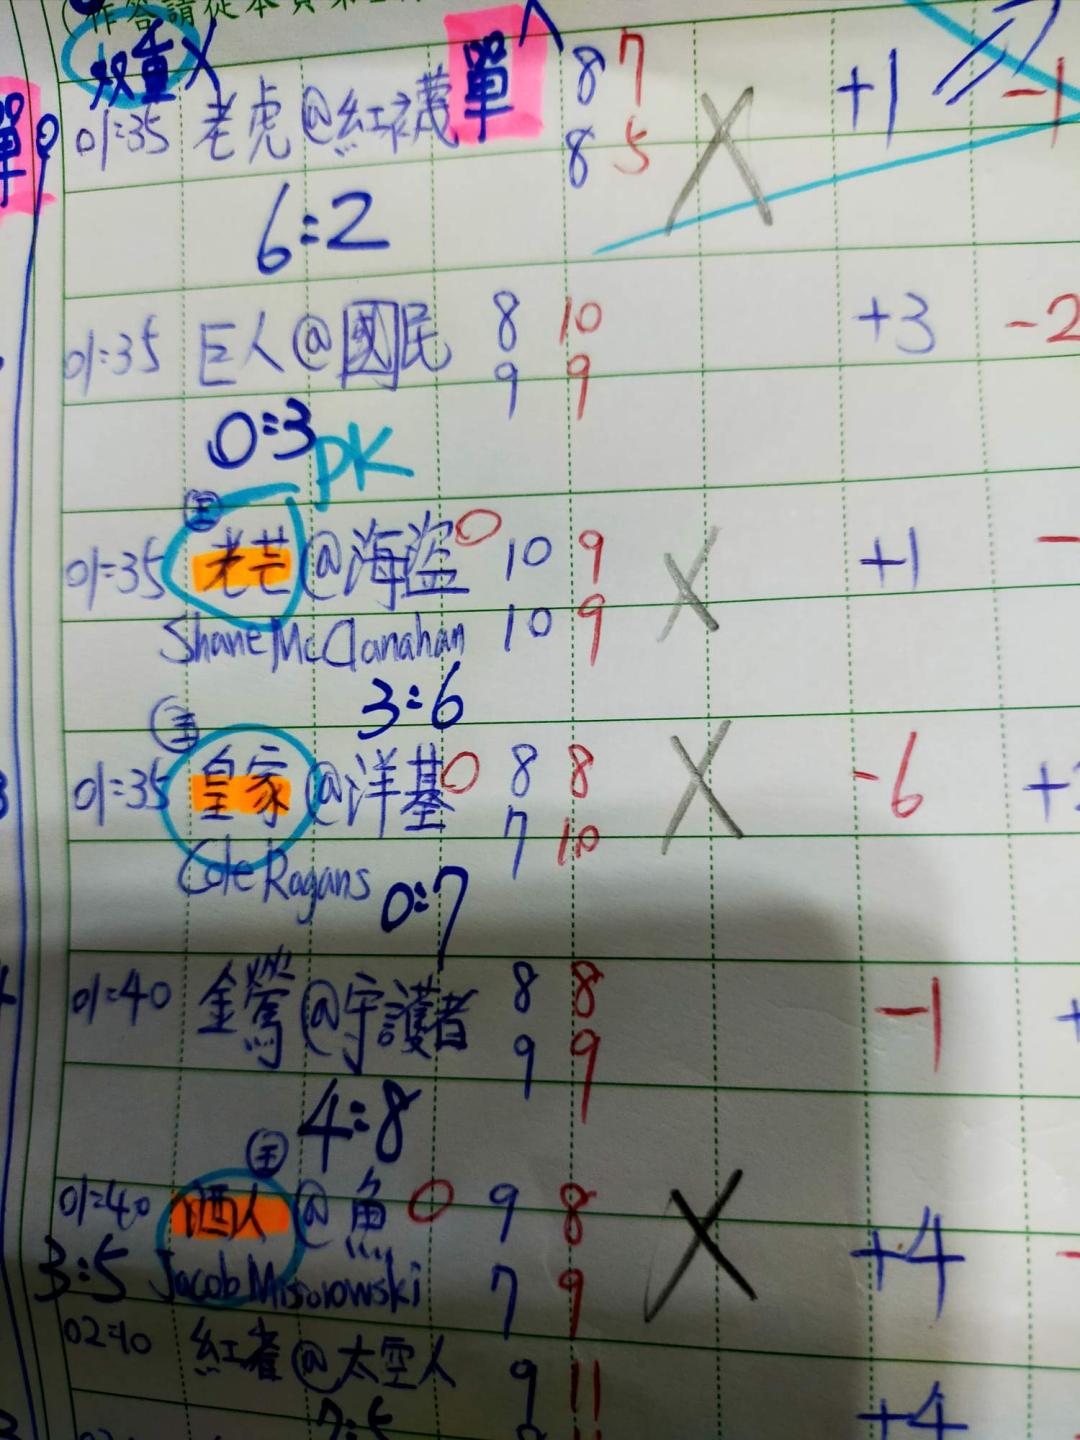 作答請從本頁第
双重 單 8 7 +1 -1
單 01:35 老虎@紅襪 8 5
6:2
01:35 巨人@國民 8 10 +3 -2
9 9
0:3 PK
主
01:35 老芒@海盜 0 10 9 +1
Shane McClanahan 10 9
3:6
主
01:35 皇家@洋基 0 8 8 -6
7 10
Cole Ragans 0:7
01:40 金鶯@守護者 8 8 -1
9 9
4:8
主
01:40 酒人@魚 0 9 8 +4
3:5 Jacob Misorowski 7 9
02:10 紅雀@太空人 9 11
+4